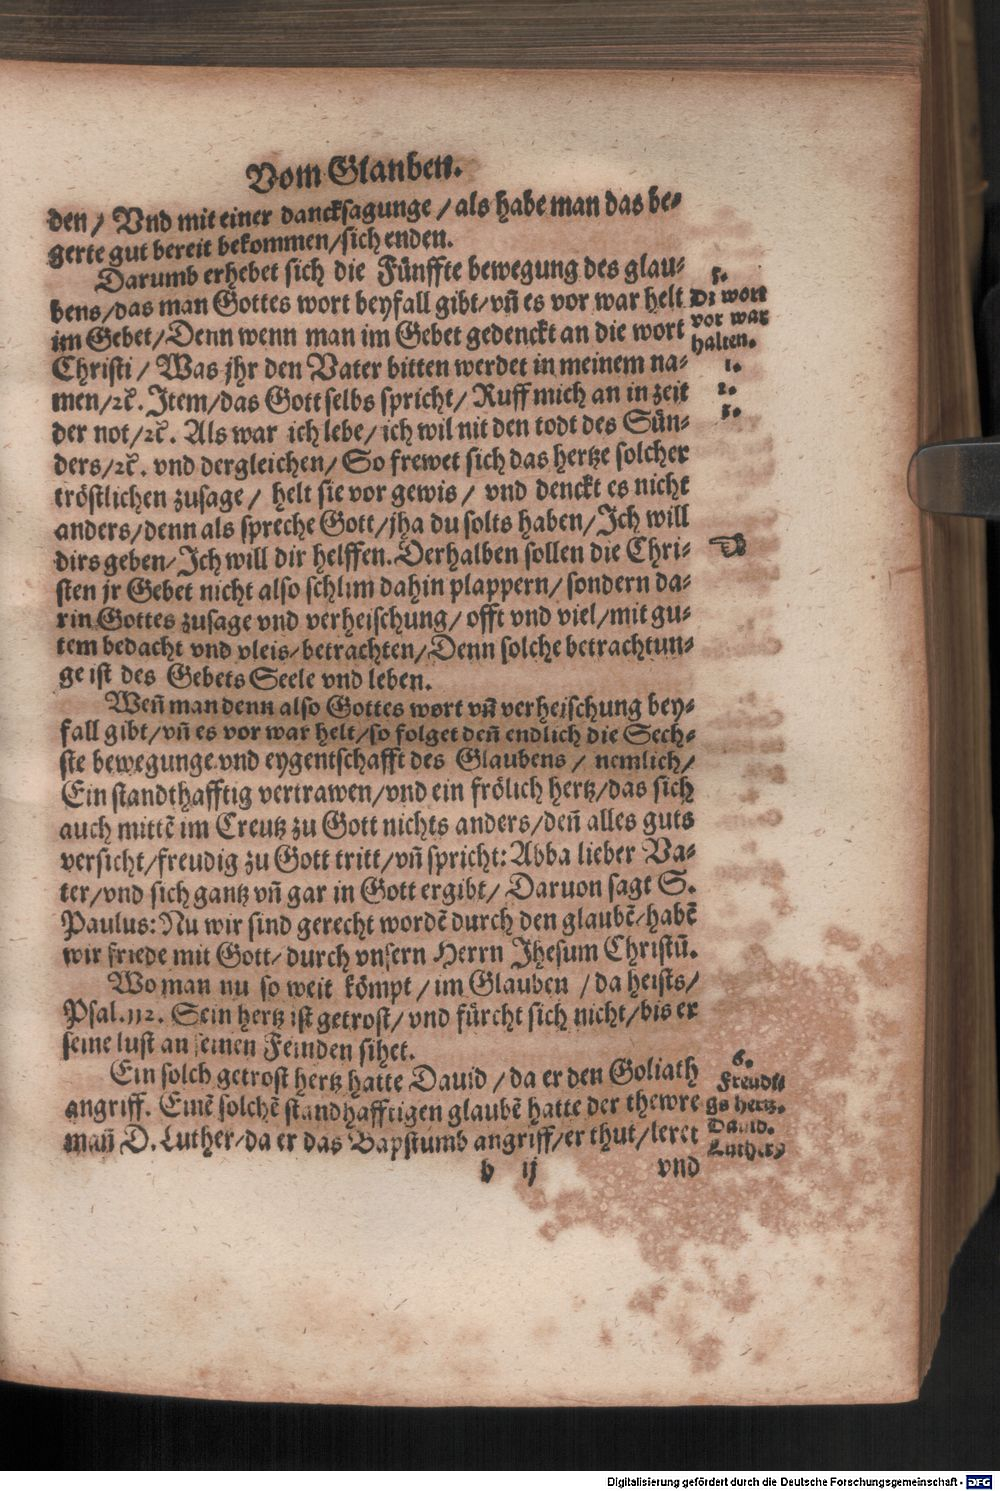 Vom Glauben.
den / Vnd mit einer dancksagunge / als habe man das be-
gerte gut bereit bekommen/sich enden.
Darumb erhebet sich die Fünffte bewegung des glau-
bens/das man Gottes wort beyfall gibt/vñ es vor war helt
im Gebet/Denn wenn man im Gebet gedenckt an die wort
Christi / Was jhr den Vater bitten werdet in meinem na-
men/ꝛc̃. Item/das Gott selbs spricht/ Ruff mich an in zeit
der not/ꝛc̃. Als war ich lebe/ich wil nit den todt des Sün-
ders/ꝛc̃. vnd dergleichen/ So frewet sich das hertze solcher
tröstlichen zusage / helt sie vor gewis / vnd denckt es nicht
anders/denn als spreche Gott/jha du solts haben/Ich will
dirs geben/Ich will dir helffen. Derhalben sollen die Chri-
sten jr Gebet nicht also schlim dahin plappern/ sondern da-
rin Gottes zusage vnd verheischung/ offt vnd viel/mit gu-
tem bedacht vnd vleis/betrachten/Denn solche betrachtun-
ge ist des Gebets Seele vnd leben.
Weñ man denn also Gottes wort vñ verheischung bey-
fall gibt/vñ es vor war helt/so folget deñ endlich die Sech-
ste bewegunge vnd eygentschafft des Glaubens / nemlich/
Ein standthafftig vertrawen/vnd ein frölich hertz/das sich
auch mittẽ im Creutz zu Gott nichts anders/deñ alles guts
versicht/freudig zu Gott tritt/vñ spricht: Abba lieber Va-
ter/vnd sich gantz vñ gar in Gott ergibt/ Daruon sagt S.
Paulus: Nu wir sind gerecht wordẽ durch den glaubẽ/habẽ
wir friede mit Gott/durch vnsern Herrn Jhesum Christũ.
Wo man nu so weit kömpt / im Glauben / da heists/
Psal. 112. Sein hertz ist getrost/ vnd fürcht sich nicht/bis er
seine lust an seinen Feinden sihet.
Ein solch getrost hertz hatte Dauid / da er den Goliath
angriff. Einẽ solchẽ standhafftigen glaubẽ hatte der thewre
mañ D. Luther/da er das Bapstumb angriff/er thut/leret
b ij vnd
5.
Dz wort
vor war
halten.
1.
2.
3.
☜
6.
Freudi-
gs hertz.
Dauid.
Luther9
Digitalisierung gefördert durch die Deutsche Forschungsgemeinschaft - DFG